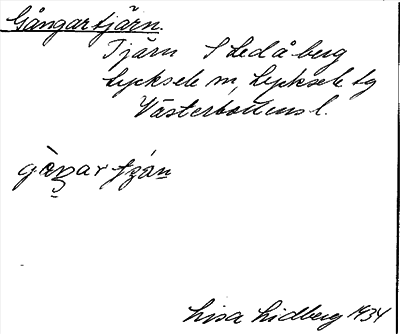 Gångartjärn.
Tjärn S Hedåberg
Lycksele m, Lycksele tg
Västerbottens l.
Lisa Lidberg 1934